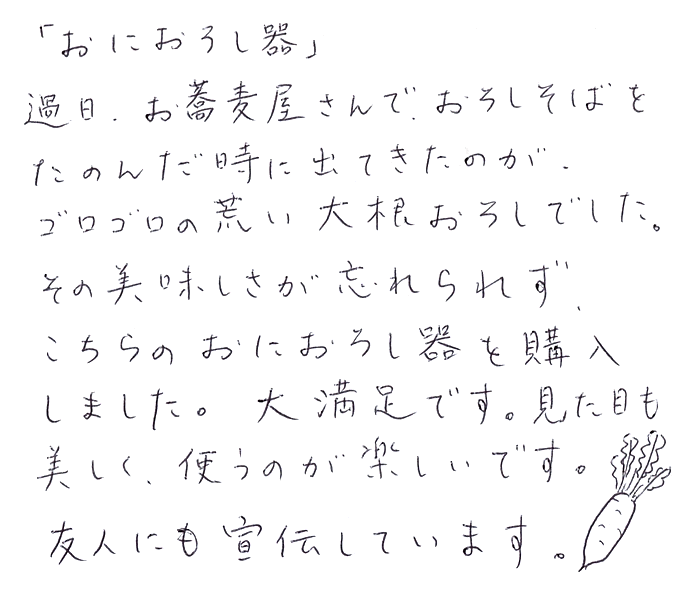 「おにおろし器」
過日、お蕎麦屋さんで、おろしそばを
たのんだ時に出てきたのが、
ゴロゴロの荒い大根おろしでした。
その美味しさが忘れられず、
こちらのおにおろし器を購入
しました。大満足です。見た目も
美しく、使うのが楽しいです。
友人にも宣伝しています。